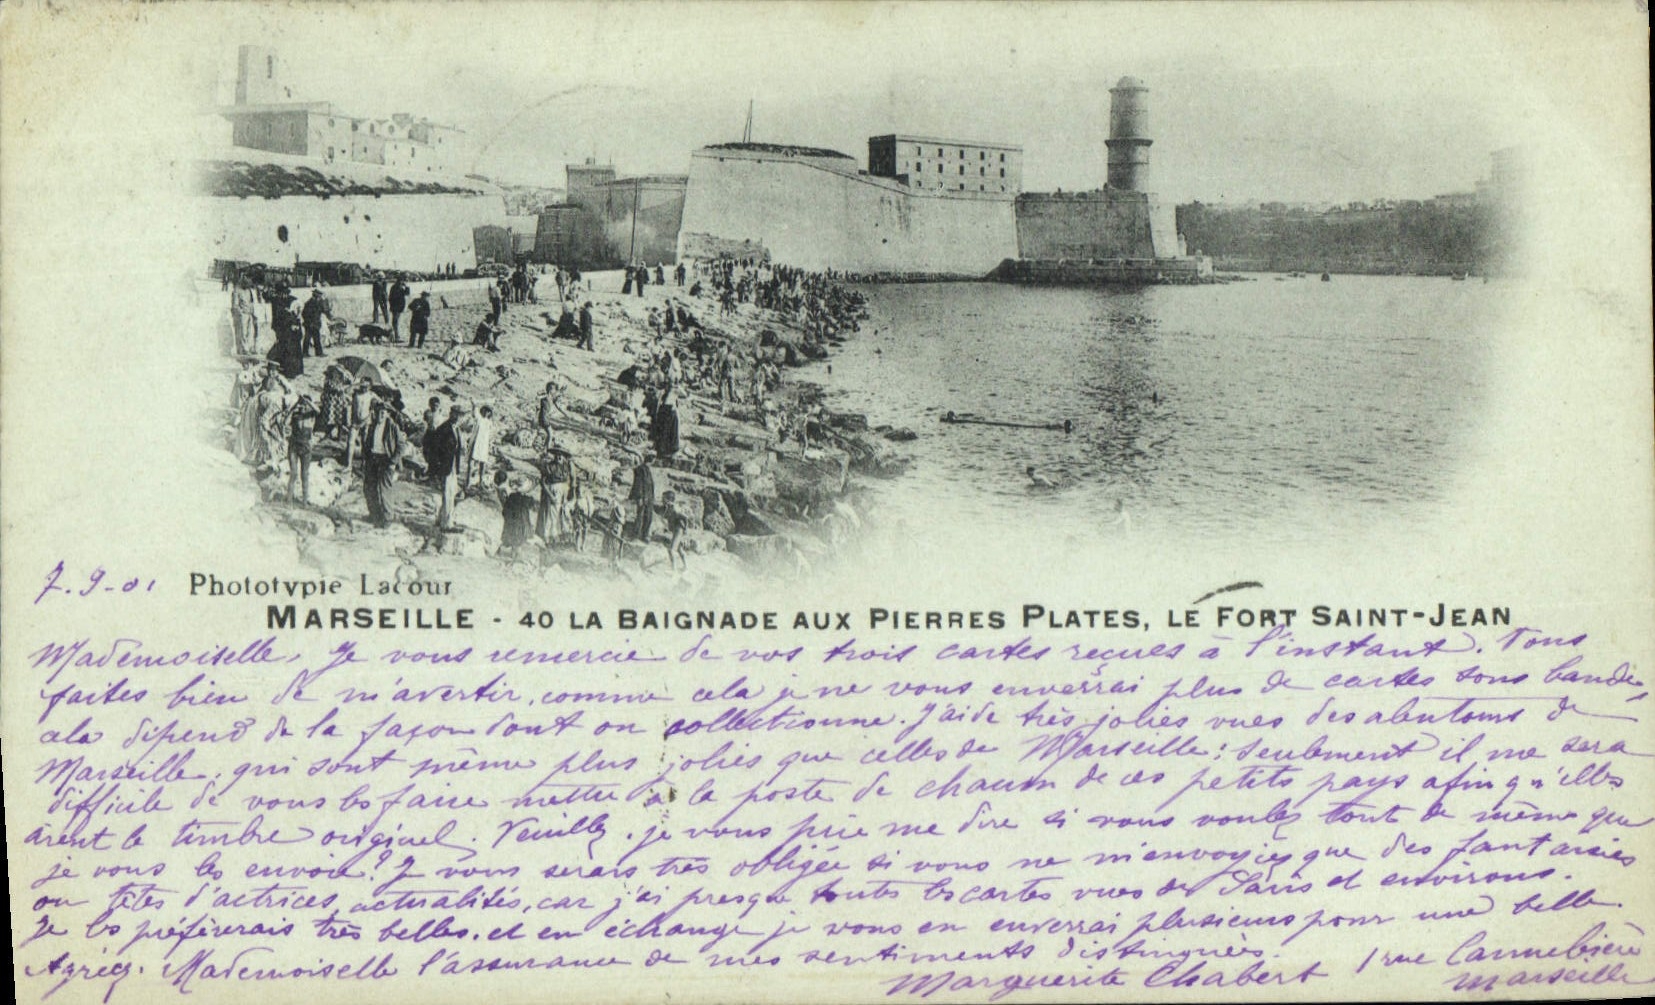 7.9-01 Phototypie Lacour
MARSEILLE - 40 LA BAIGNADE AUX PIERRES PLATES, LE FORT SAINT-JEAN
Mademoiselle, Je vous remercie de vos trois cartes reçues à l'instant. Vous
faites bien de m'avertir, comme cela je ne vous enverrai plus de cartes sous bande,
cela dépend de la façon dont on collectionne. J'ai de très jolies vues des alentours de
Marseille, qui sont même plus jolies que celles de Marseille; seulement il me sera
difficile de vous les faire mettre à la poste de chacun de ces petits pays afin qu'elles
aient le timbre originel. Veuillez, je vous prie me dire si vous voulez tout de même que
je vous les envoie? Je vous serais très obligée si vous ne m'envoyiez que des fantaisies
ou têtes d'actrices, actualités, car j'ai presque toutes les cartes vues de Paris et environs.
Je les préfèrerais très belles. et en échange je vous en enverrai plusieurs pour une belle.
Agréez. Mademoiselle l'assurance de mes sentiments distingués.
Marguerite Chabert
1 rue Cannebière
Marseille